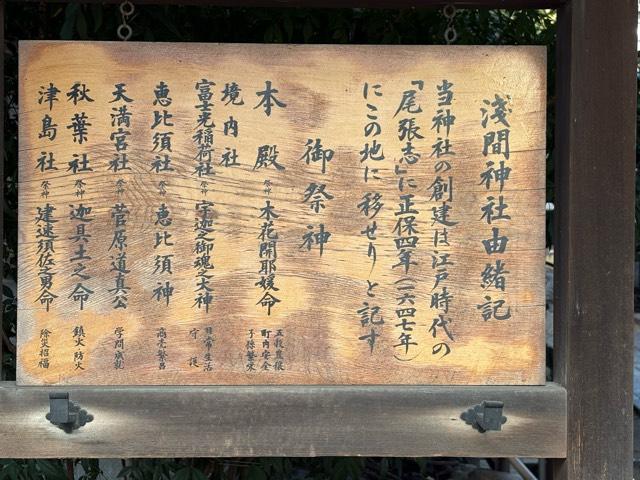 淺間神社由緒記
当神社の創建は江戸時代の
「尾張志」に正保四年(一六四七年)
にこの地に移せりと記す
御祭神
本殿 祭神 木花開耶媛命 五穀豊穣 町内安全 子孫繁栄
境内社
富士光稲荷社 祭神 宇迦之御魂之大神 日常生活 守護
恵比須社 祭神 恵比須神 商売繁昌
天満宮社 祭神 菅原道真公 学問成就
秋葉社 祭神 迦具土之命 鎮火防火
津島社 祭神 建速須佐之男命 除災招福